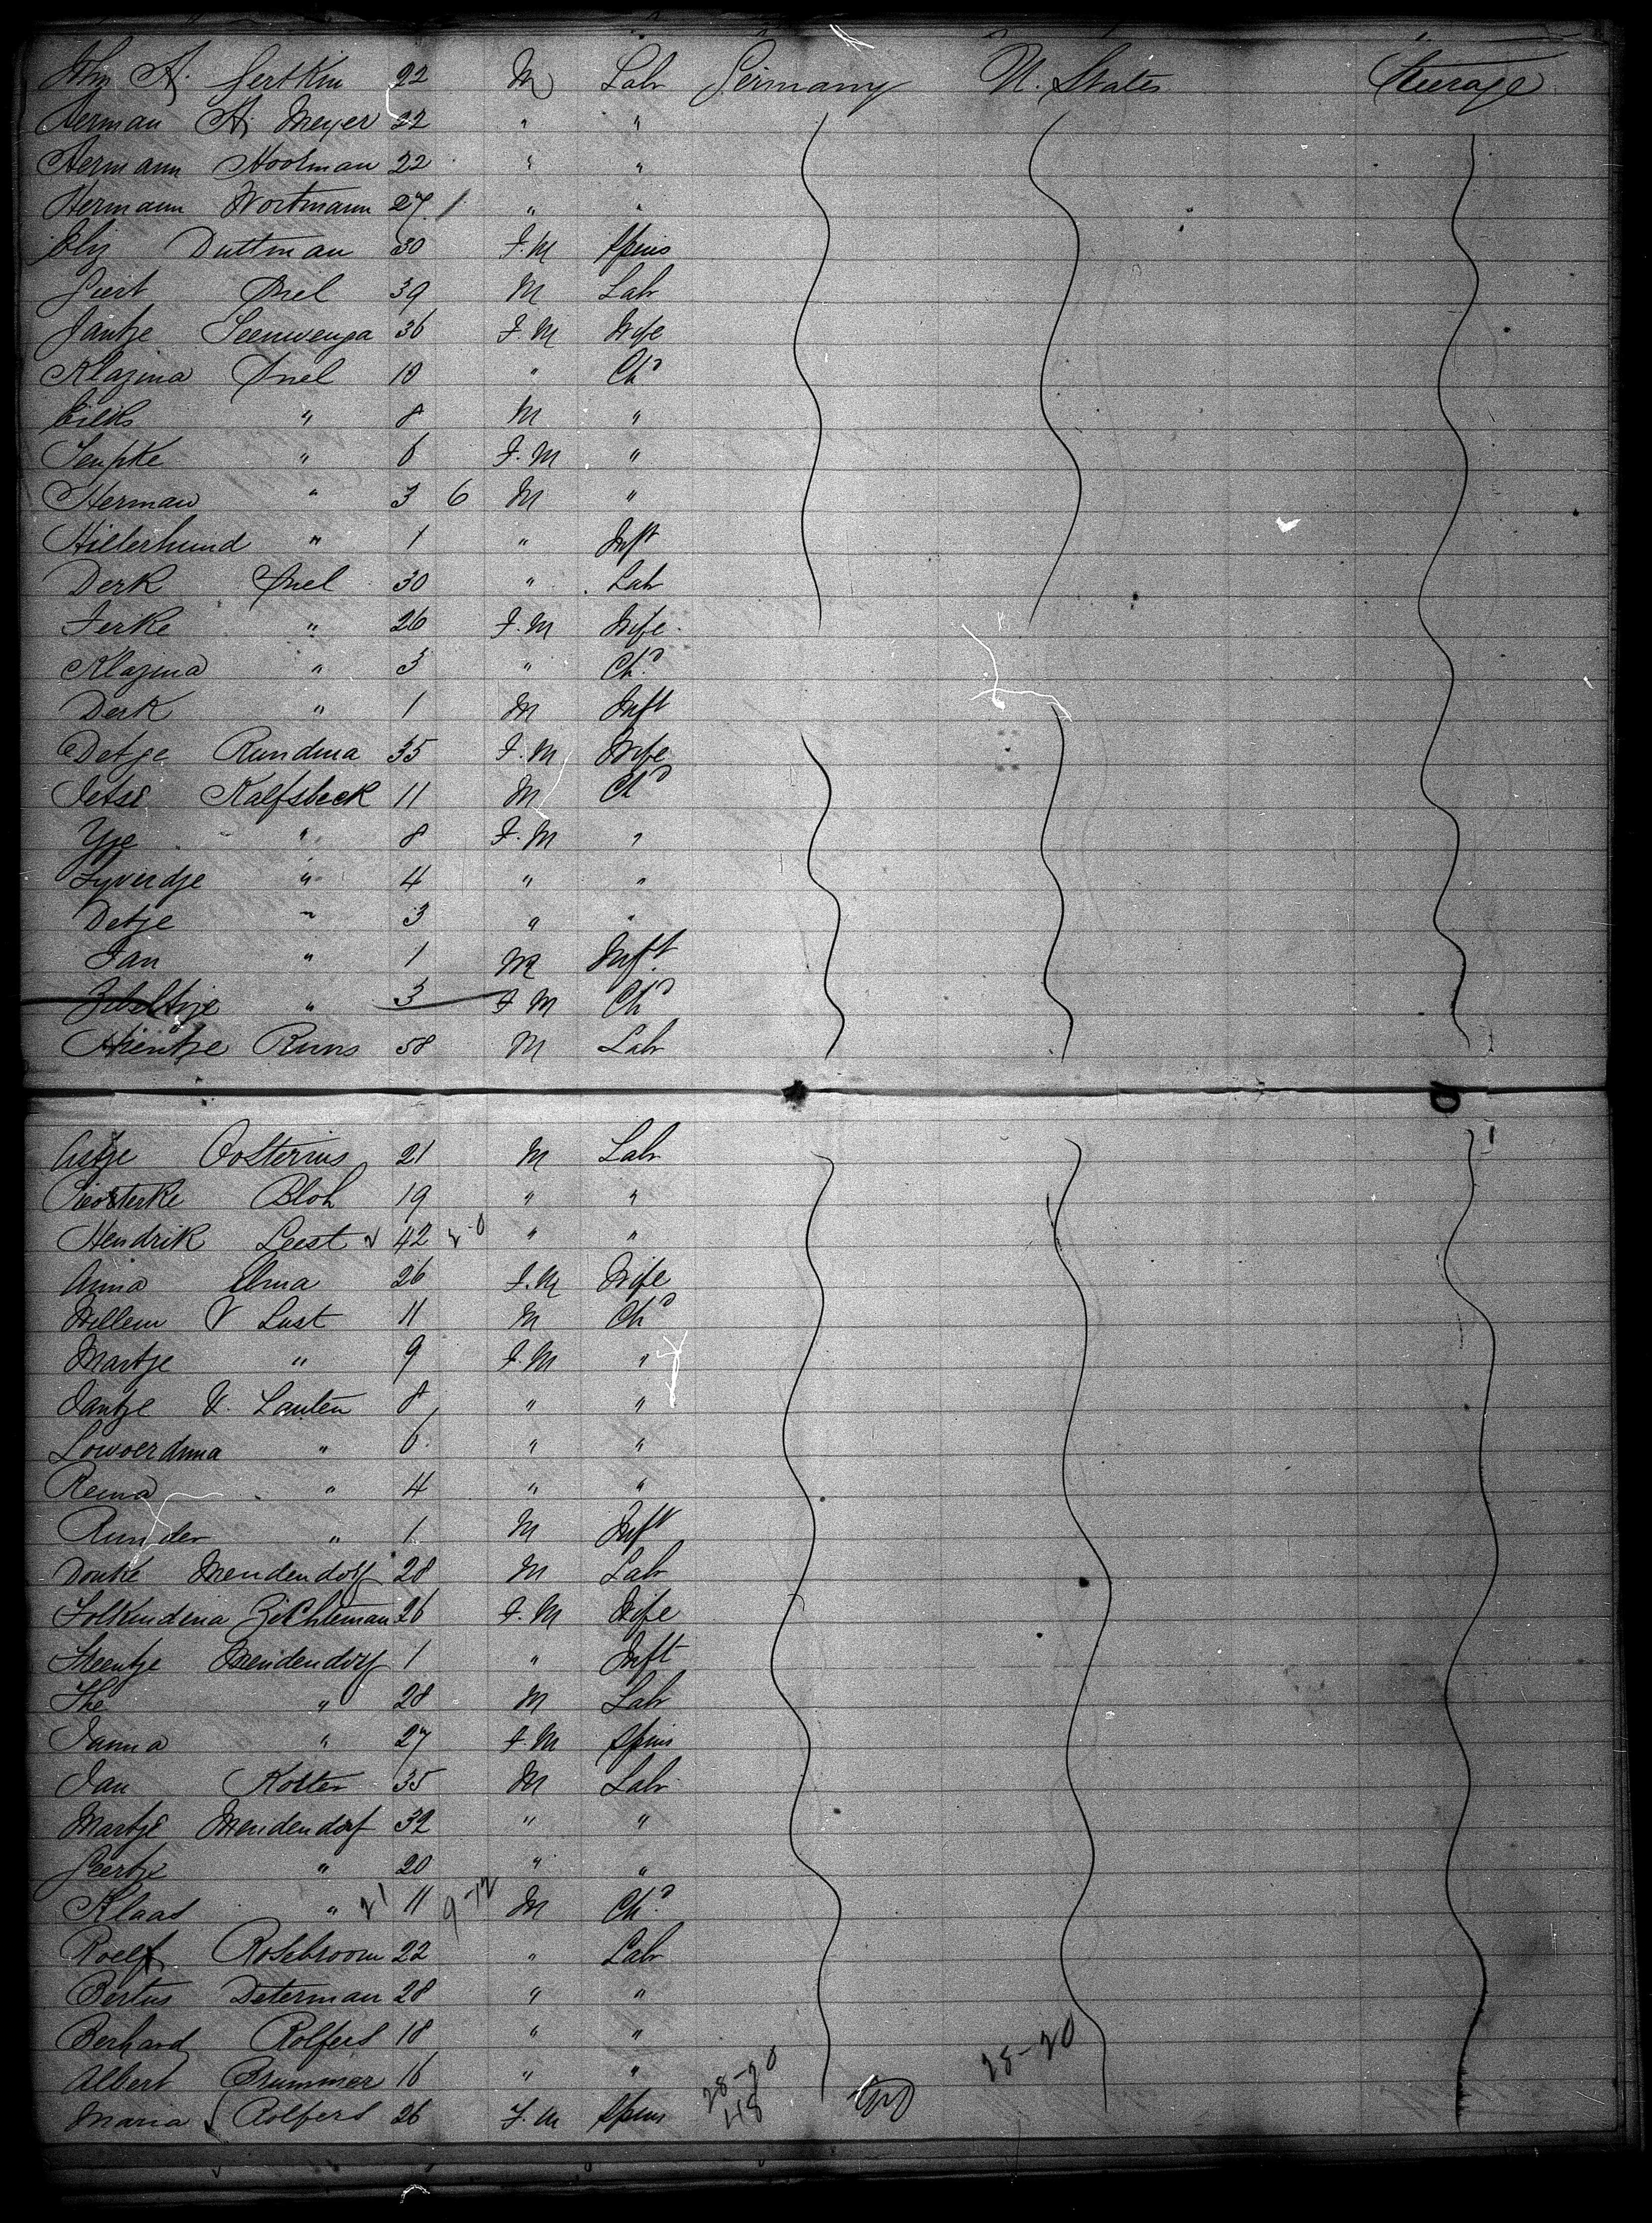 John A. Gertkin 22 M Labr Germany U. States Steerage
Herman H. Meyer 22 " "
Hermann Hoolman 22 " "
Hermann Wortmann 27 " "
Eliz Duttman 30 F.M Spins
Geert Pnel 39 M Labr
Jantje Seenwenga 36 F.M Wife
Klazina Pnel 10 " Chd
Eilks " 8 M "
Senpke " 6 F.M "
Herman " 3 6 M "
Hillerhund " 1 " Inft
Derk Pnel 30 " Labr
Ferke " 26 F.M Wife
Klazina " 3 " Chd
Derk " 1 M Inft
Detje Rundina 35 F.M Wife
Jetse Kalfsbeek 11 M Chd
Yje " 8 F.M "
Lyverdje " 4 " "
Detje " 3 " "
Jan " 1 M Inft
" 3 F M Chd
Hientje Runs 58 M Labr
Aetje Oosterius 21 M Labr
Bloh 19 " "
Hendrik Leest 42 " "
Anna Elma 26 F.M Wife
Willem V Lust 11 M Chd
Martje " 9 F.M "
Jantje V. Lauten 8 " "
Lowoerdina " 6 " "
Reina " 4 " "
Runder " 1 M Inft
Douke Mendendorf 28 M Labr
Folkendena Zichteman 26 F.M Wife
Heentje Meidendorf 1 " Inft
" 28 M Labr
Janna " 27 F.M Spins
Jan Koster 35 M Labr
Martje Meidendorf 32 " "
Geertje " 20 " "
Klaas " 21 11 9-12 M Chd
Roelf Rosebroom 22 " Labr
Bertus Determan 28 " "
Berhard Rolfers 18 " " 28-20
Albert Brummer 16 " " 28-20
Maria Rolfers 26 F.M Spins 48